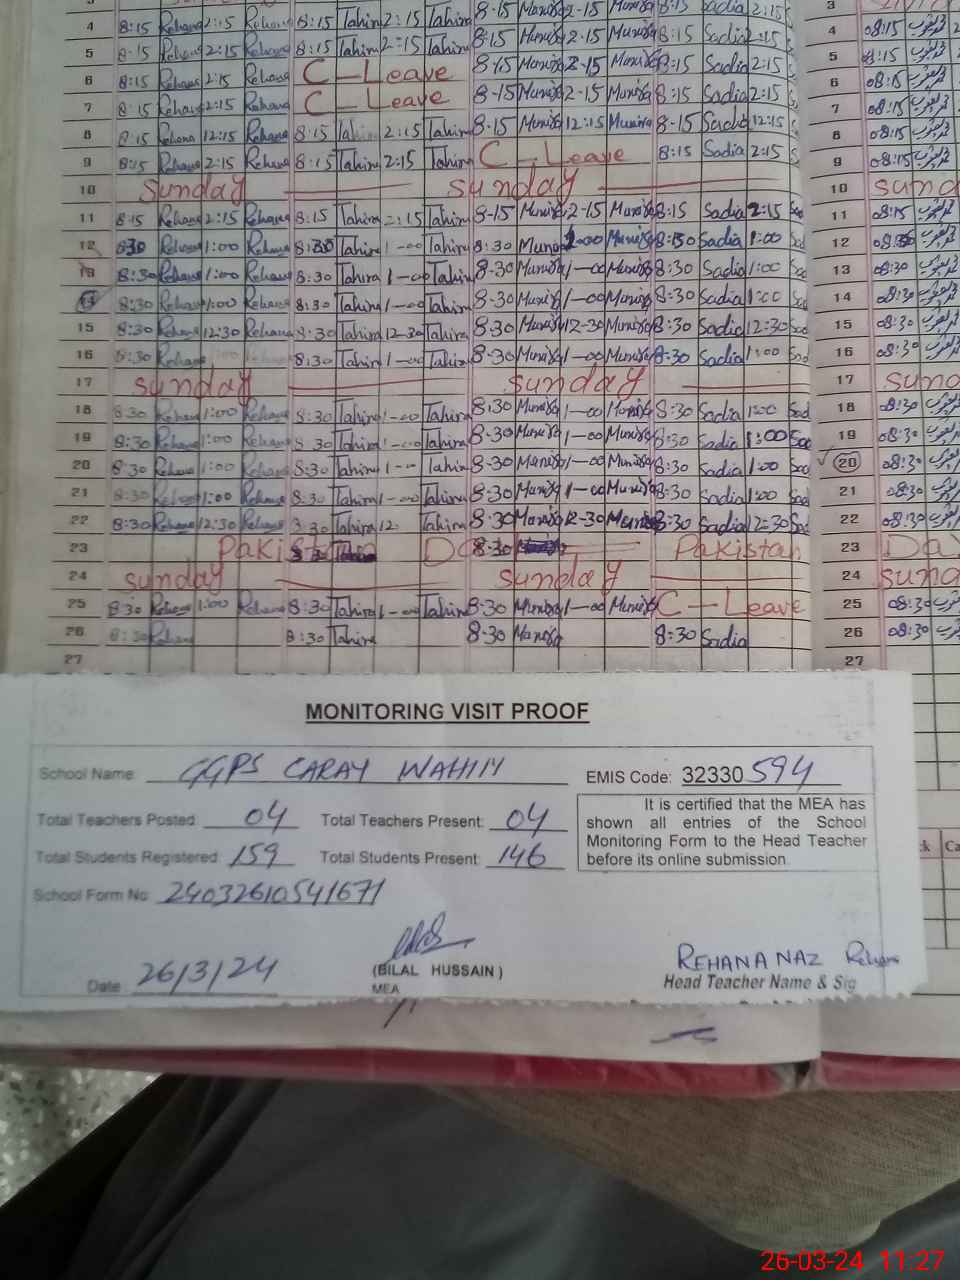 3 3
4 8:15 Rehana 2:15 Rehana 8:15 Tahira 2:15 Tahira 8-15 Munisa 2-15 Munisa 8:15 Sadia 2:15 4 08:15
5 8:15 Rehana 2:15 Rehana 8:15 Tahira 2:15 Tahira 8-15 Munisa 2-15 Munisa 8:15 Sadia 2:15 5 08:15
6 8:15 Rehana 2:15 Rehana C-Leave 8-15 Munisa 2-15 Munisa 8:15 Sadia 2:15 6 08:15
7 8:15 Rehana 2:15 Rehana C-Leave 8-15 Munisa 2-15 Munisa 8:15 Sadia 2:15 7 08:15
8 8:15 Rehana 12:15 Rehana 8:15 Tahira 2:15 Tahira 8-15 Munisa 12:15 Munisa 8-15 Sadia 12:15 8 08:15
9 8:15 Rehana 2:15 Rehana 8:15 Tahira 2:15 Tahira C-Leave 8:15 Sadia 2:15 9 08:15
10 Sunday Sunday 10 Sund
11 8:15 Rehana 2:15 Rehana 8:15 Tahira 2:15 Tahira 8-15 Munisa 2-15 Munisa 8:15 Sadia 2:15 11 08:15
12 830 Rehana 1:00 Rehana 8:30 Tahira 1-00 Tahira 8:30 Munisa 1-00 Munisa 8:30 Sadia 1:00 12 08:30
13 8:30 Rehana 1:00 Rehana 8:30 Tahira 1-00 Tahira 8-30 Munisa 1-00 Munisa 8:30 Sadia 1:00 13 08:30
14 8:30 Rehana 1:00 Rehana 8:30 Tahira 1-00 Tahira 8-30 Munisa 1-00 Munisa 8:30 Sadia 1:00 14 08:30
15 8:30 Rehana 12:30 Rehana 8:30 Tahira 12-30 Tahira 8-30 Munisa 12-30 Munisa 8:30 Sadia 12:30 15 08:30
16 8:30 Rehana 1:00 Rehana 8:30 Tahira 1-00 Tahira 8-30 Munisa 1-00 Munisa 8:30 Sadia 1:00 16 08:30
17 Sunday Sunday 17 Sund
18 8:30 Rehana 1:00 Rehana 8:30 Tahira 1-00 Tahira 8:30 Munisa 1-00 Munisa 8:30 Sadia 1:00 18 08:30
19 8:30 Rehana 1:00 Rehana 8 30 Tahira 1-00 Tahira 8-30 Munisa 1-00 Munisa 8:30 Sadia 1:00 19 08:30
20 8:30 Rehana 1:00 Rehana 8:30 Tahira 1-00 Tahira 8-30 Munisa 1-00 Munisa 8:30 Sadia 1:00 20 08:30
21 8:30 Rehana 1:00 Rehana 8:30 Tahira 1-00 Tahira 8-30 Munisa 1-00 Munisa 8:30 Sadia 1:00 21 08:30
22 8:30 Rehana 12:30 Rehana 8 30 Tahira 12 Tahira 8-30 Munisa 12-30 Munisa 8:30 Sadia 12:30 22 08:30
23 Pakistan Day 8-30 Pakistan 23 Day
24 Sunday Sunday 24 Sund
25 8:30 Rehana 1:00 Rehana 8:30 Tahira 1-00 Tahira 8-30 Munisa 1-00 Munisa C-Leave 25 08:30
26 8:30 Rehana 8:30 Tahira 8-30 Munisa 8:30 Sadia 26 08:30
27 27
MONITORING VISIT PROOF
School Name: GGPS CARAY WAHIN EMIS Code: 32330594
Total Teachers Posted: 04 Total Teachers Present: 04
Total Students Registered: 159 Total Students Present: 146
It is certified that the MEA has
shown all entries of the School
Monitoring Form to the Head Teacher
before its online submission.
School Form No: 24032610541671
Date: 26/3/24
(BILAL HUSSAIN)
MEA
REHANA NAZ Rehana
Head Teacher Name & Sig
k Ca
26-03-24 11:27